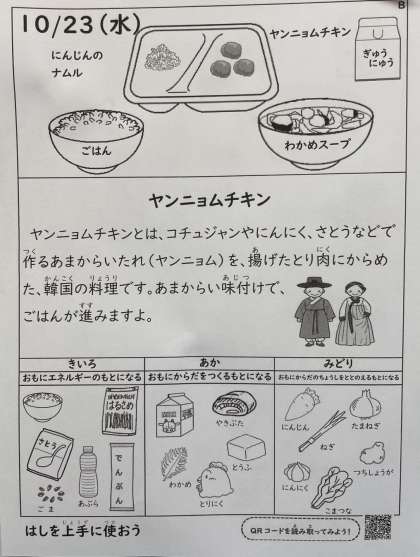 B
10/23(水)
にんじんの
ナムル
ヤンニョムチキン
ぎゅう
にゅう
ごはん
わかめスープ
ヤンニョムチキン
ヤンニョムチキンとは、コチュジャンやにんにく、さとうなどで
作るあまからいたれ(ヤンニョム)を、揚げたとり肉にからめ
た、韓国の料理です。あまからい味付けで、
ごはんが進みますよ。
きいろ
おもにエネルギーのもとになる
はるさめ
さとう
でんぷん
ごま
あぶら
あか
おもにからだをつくるもとになる
やきぶた
とうふ
わかめ
とりにく
みどり
おもにからだのちょうしをととのえるもとになる
にんじん
たまねぎ
ねぎ
つちしょうが
にんにく
こまつな
はしを上手に使おう
QRコードを読み取ってみよう!